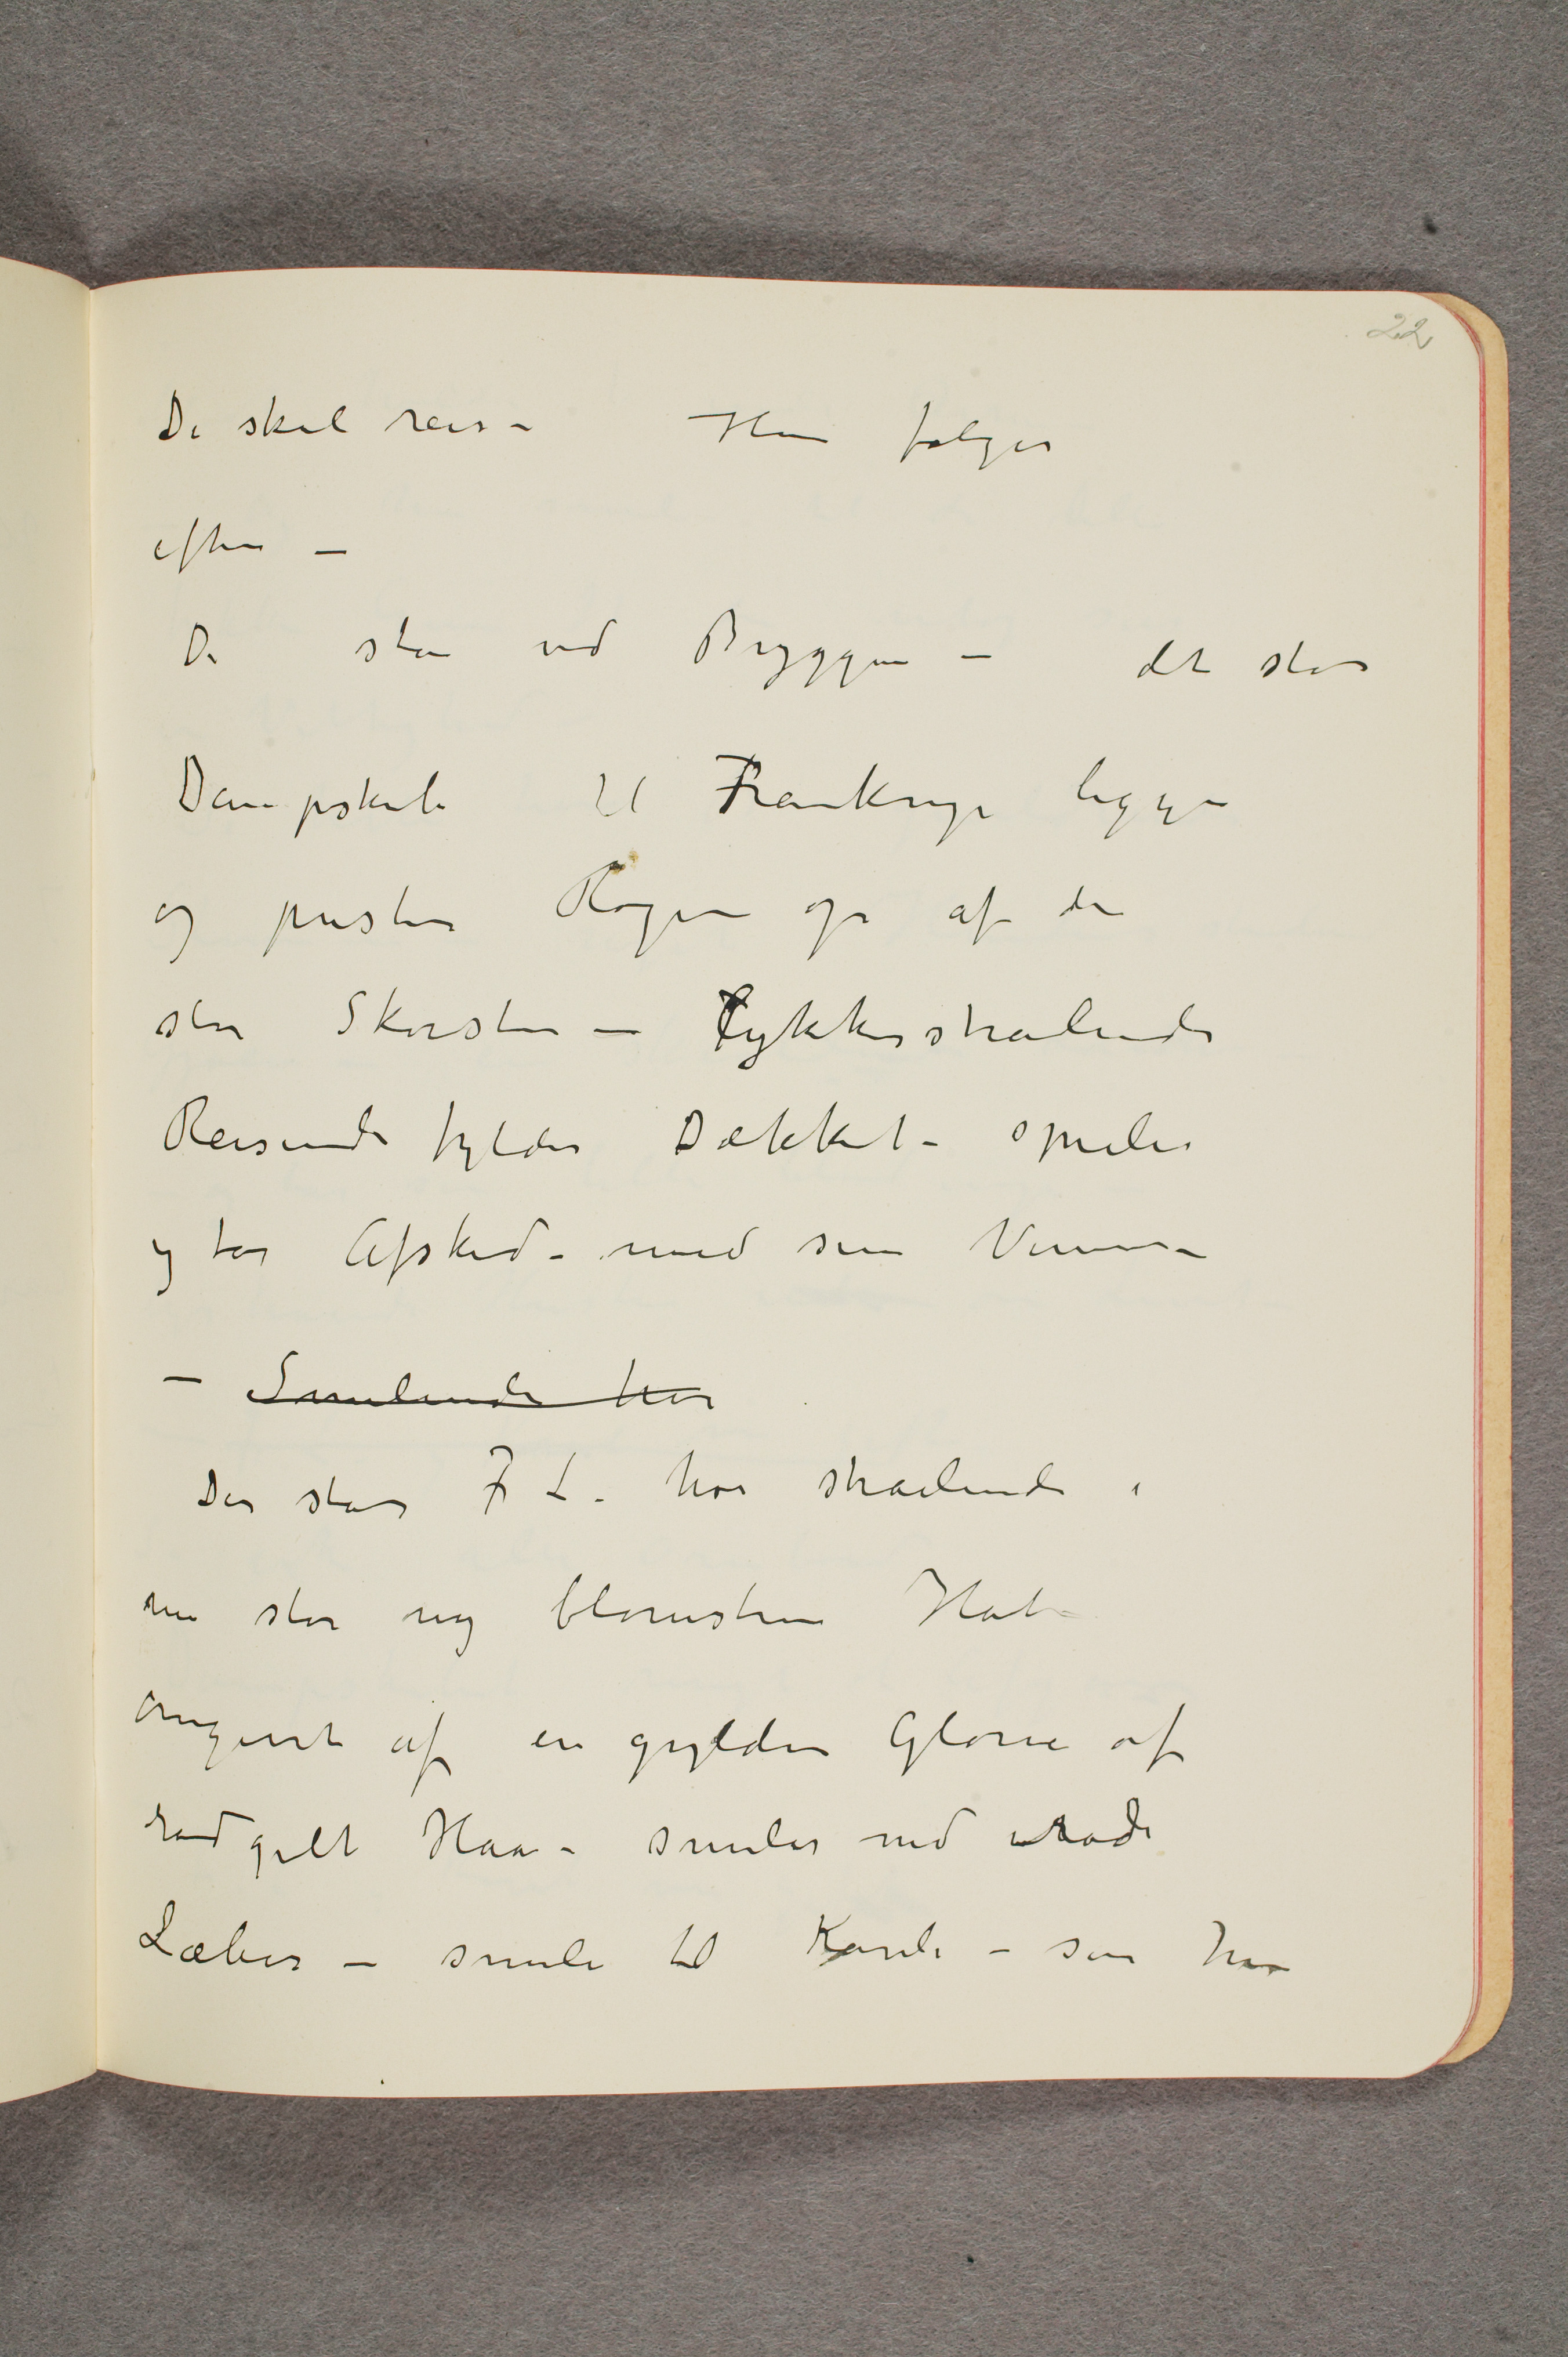 22
De skal reise – Hun følger
efter –
De står ved Bryggen – det store
Dampskib til Frankrige ligger
og puster Røgen op af den
store Skorsten – Lykkestrålende
Reisende fylder Dækket –
og tar Afsked – med sine Venner
– Smilende hos
Der står F L. hos strålende i
ny blomstren Hat –
omgivet af en gylden Glorie af
rødgult Haar – smiler med røde
Læber – smiler til – som hun